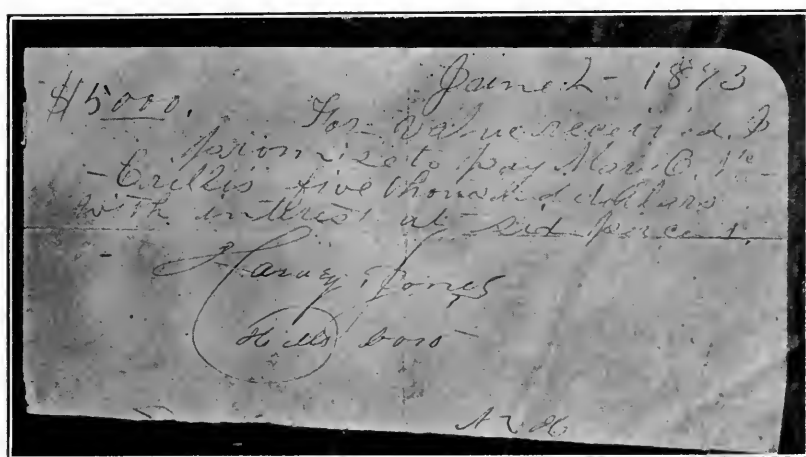 June 2 - 1873
$5000.
For value received. I
promise to pay Mary C.
- Crillis five thousand dollars
with interest at six per cent.
Harvey Jones
Hills boro
N. H.